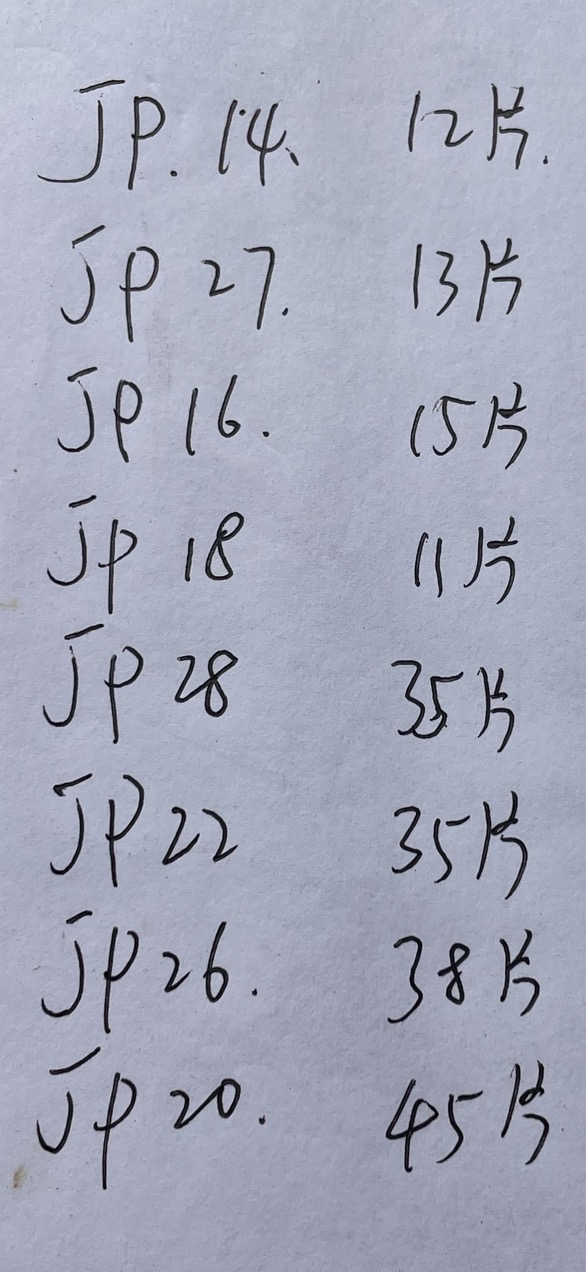 JP. 14、 12片.
JP 27. 13片
JP 16. 15片
JP 18 11片
JP 28 35片
JP 22 35片
JP 26. 38片
JP 20. 45片